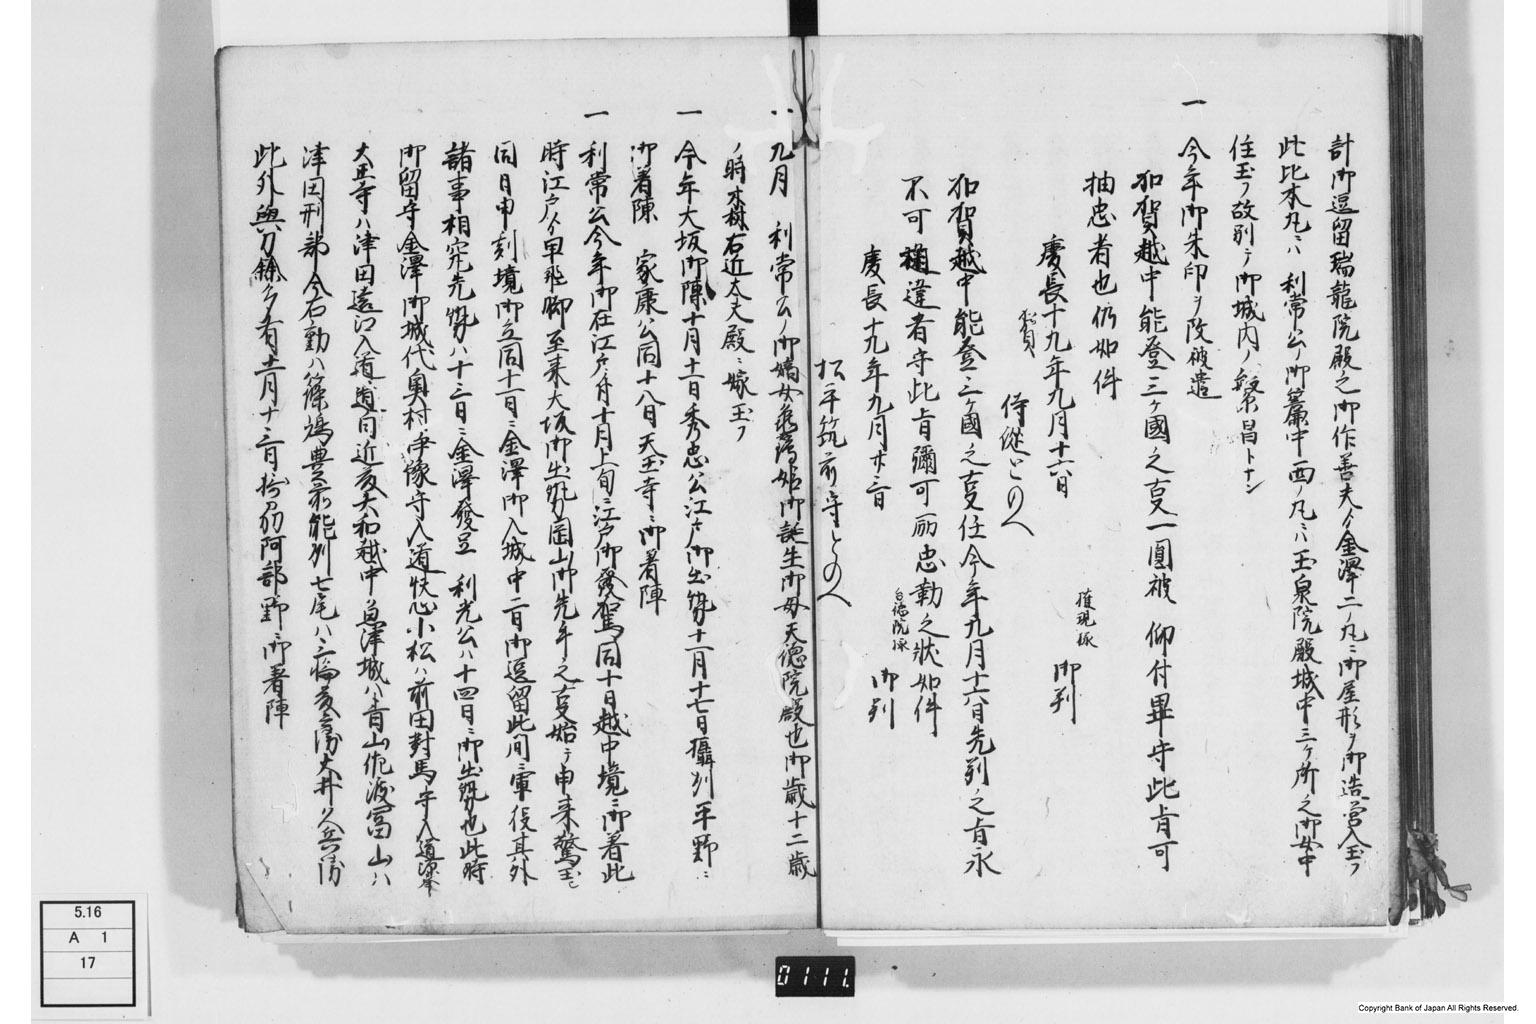 計御逗留瑞龍院殿之御作善夫ゟ金澤二ノ丸ニ御屋形ヲ御造営入玉フ
此比本丸ニハ 利常公ノ御簾中西ノ丸ニハ玉泉院殿城中三ヶ所之御女中
住玉フ故別テ御城内ノ繁昌トナン
一 今年御朱印ヲ改被遣
加賀越中能登三ヶ國之支一圓被 仰付畢守此旨可
抽忠者也仍如件
慶長十九年九月十六日 権現様 御判
松平
侍従とのへ
加賀越中能登三ヶ國之支任今年九月十六日先判之旨永
不可違者守此旨彌可励忠勤之状如件
慶長十九年九月廿三日 台徳院様 御判
松平筑前守とのへ
一 九月 利常公ノ御嫡女亀鶴姫御誕生御母天徳院殿也御歳十二歳
ノ時森右近太夫殿ニ嫁玉フ
一 今年大坂御陳十月十一日秀忠公江戸御出勢十一月十七日攝州平野ニ
御着陳 家康公同十八日天王寺ニ御着陣
一 利常公今年御在江戸ノ十月上旬ニ江戸御發駕同十日越中境ニ御着此
時江戸ゟ早飛脚至来大坂御出勢岡山御先手之支始テ申来驚玉ヒ
同日申刻境御立同十一日ニ金澤御入城中二日御逗留此间ニ軍役其外
諸事相究先勢ハ十三日ニ金澤發足 利光公ハ十四日ニ御出勢也此時
御留守金澤御城代奥村伊豫守入道快心小松ハ前田對馬守入道源峯
大正寺ハ津田遠江入道道同近藤大和越中魚津城ハ青山佐渡富山ハ
津田刑部今石動ハ篠嶋豊前能州七尾ハ三輪藤兵衛大井久兵衛
此外與力餘多有十一月十三日阿部野ニ御着陣
5.16
A 1
17
0111.
Copyright Bank of Japan All Rights Reserved.